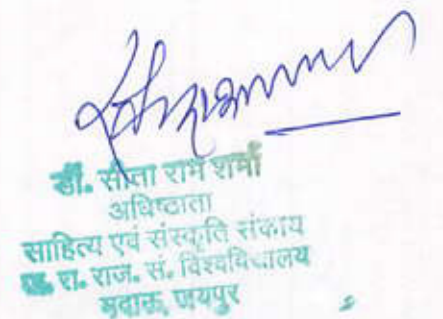 डॉ. सीता राम शर्मा
अधिष्ठाता
साहित्य एवं संस्कृति संकाय
रा. राज. सं. विश्वविद्यालय
मदाऊ, जयपुर